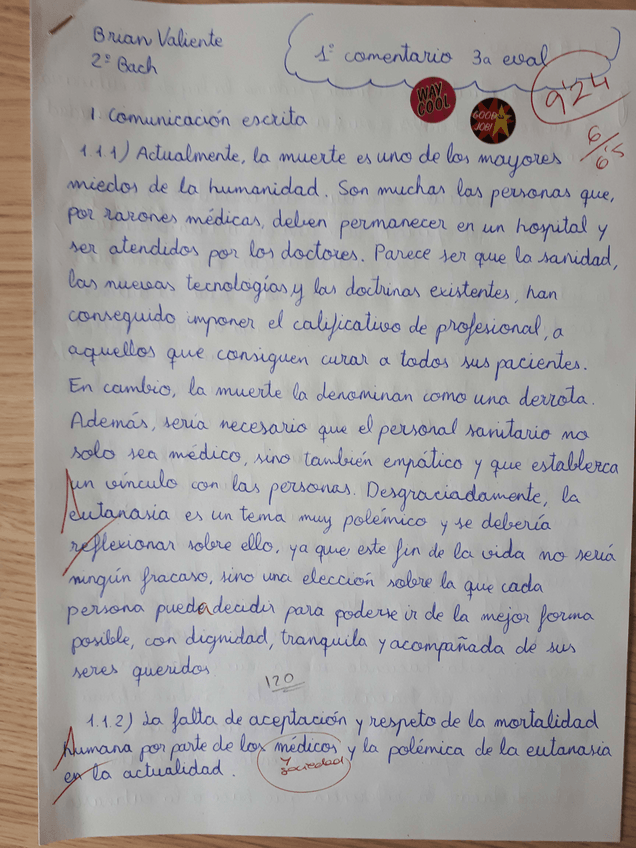 Brian Valiente
2º Bach
1º comentario 3a eval
9'24
WAY
COOL
GOOD
JOB!
6/6'5
1. Comunicación escrita
1.1.1) Actualmente, la muerte es uno de los mayores
miedos de la humanidad. Son muchas las personas que,
por razones médicas, deben permanecer en un hospital y
ser atendidos por los doctores. Parece ser que la sanidad,
las nuevas tecnologías, y las doctrinas existentes, han
conseguido imponer el calificativo de profesional, a
aquellos que consiguen curar a todos sus pacientes.
En cambio, la muerte la denominan como una derrota.
Además, sería necesario que el personal sanitario no
solo sea médico, sino también empático y que establezca
un vínculo con las personas. Desgraciadamente, la
eutanasia es un tema muy polémico y se debería
reflexionar sobre ello, ya que este fin de la vida no sería
ningún fracaso, sino una elección sobre la que cada
persona pueda decidir para poderse ir de la mejor forma
posible, con dignidad, tranquila y acompañada de sus
seres queridos.
120
1.1.2) La falta de aceptación y respeto de la mortalidad
humana por parte de los médicos y la polémica de la eutanasia
en la actualidad.
y
sociedad